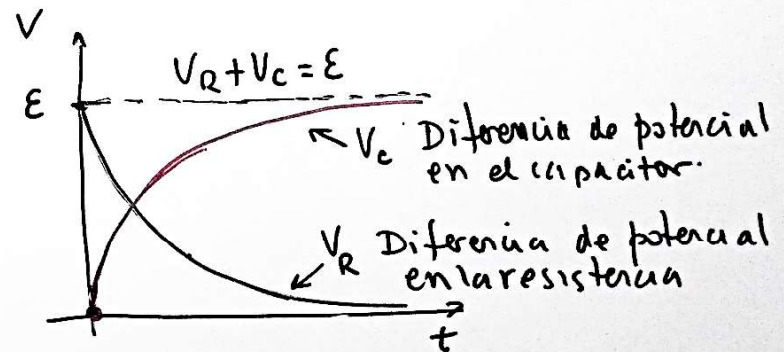 V
V_R + V_C = ε
ε
V_C Diferencia de potencial
en el capacitor.
V_R Diferencia de potencial
en la resistencia
t